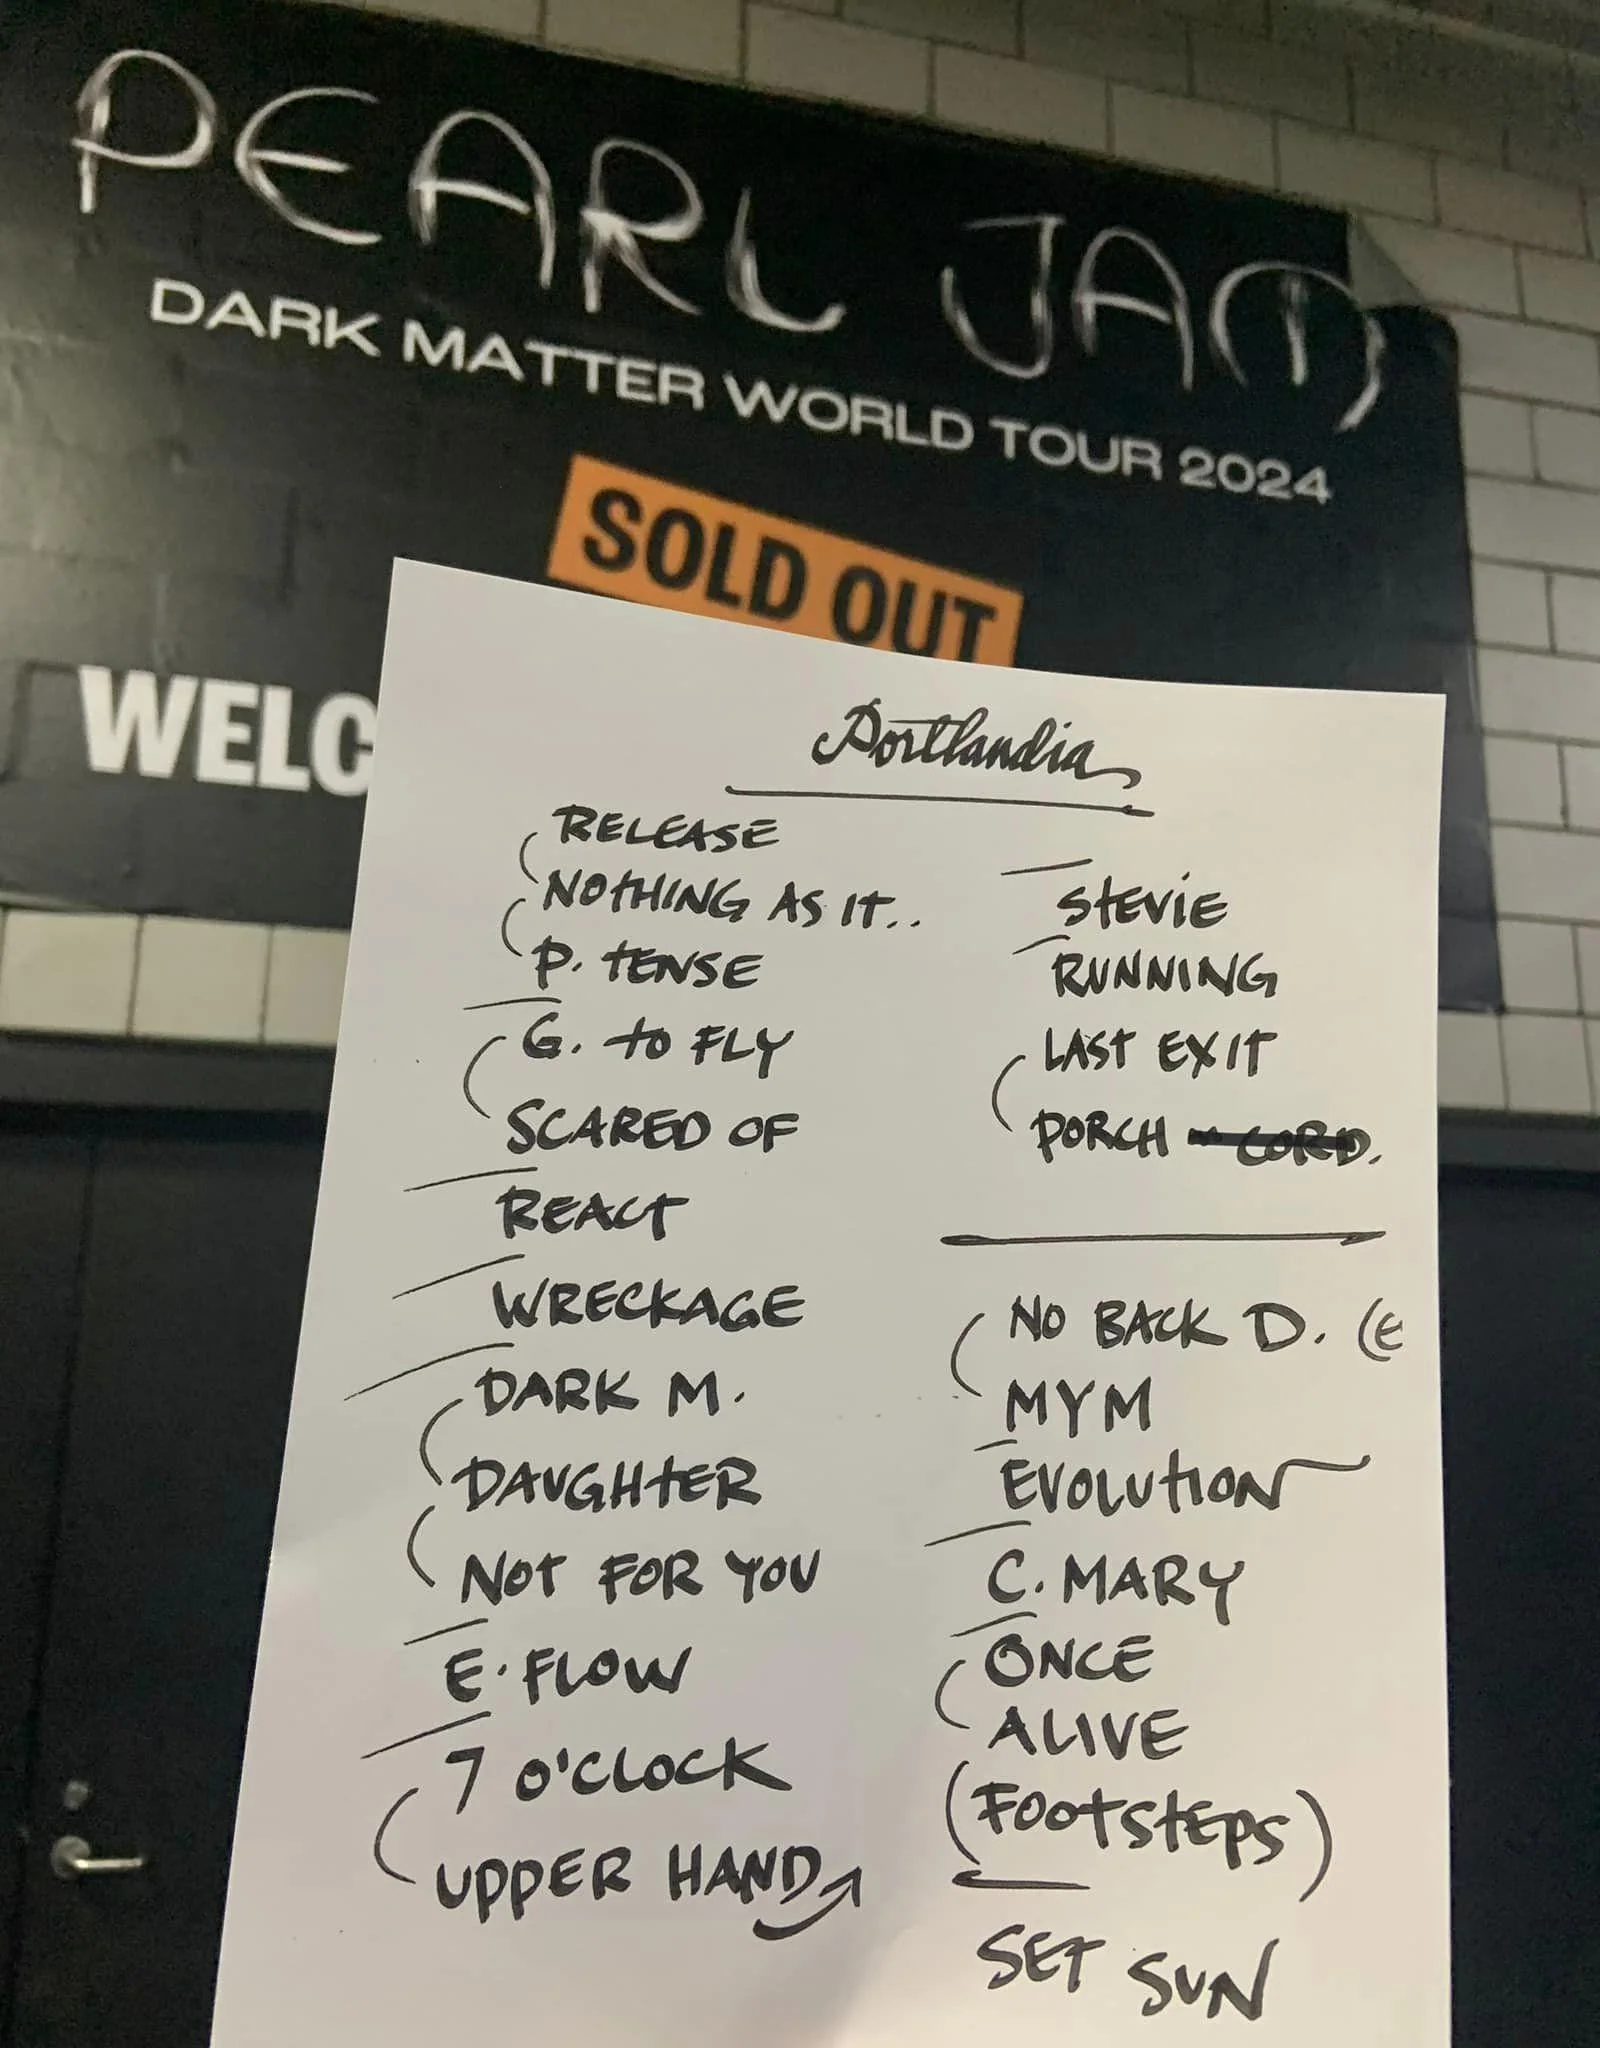 PEARL JAM
DARK MATTER WORLD TOUR 2024
SOLD OUT
WELC
Portlandia
RELEASE
NOTHING AS IT..
P. TENSE
G. to FLY
SCARED OF
REACT
WRECKAGE
DARK M.
DAUGHTER
NOT FOR YOU
E. FLOW
7 O'CLOCK
UPPER HAND
STEVIE
RUNNING
LAST EXIT
PORCH - CORD.
NO BACK D. (E
MYM
EVOLUTION
C. MARY
ONCE
ALIVE
(FOOTSTEPS)
SET SUN